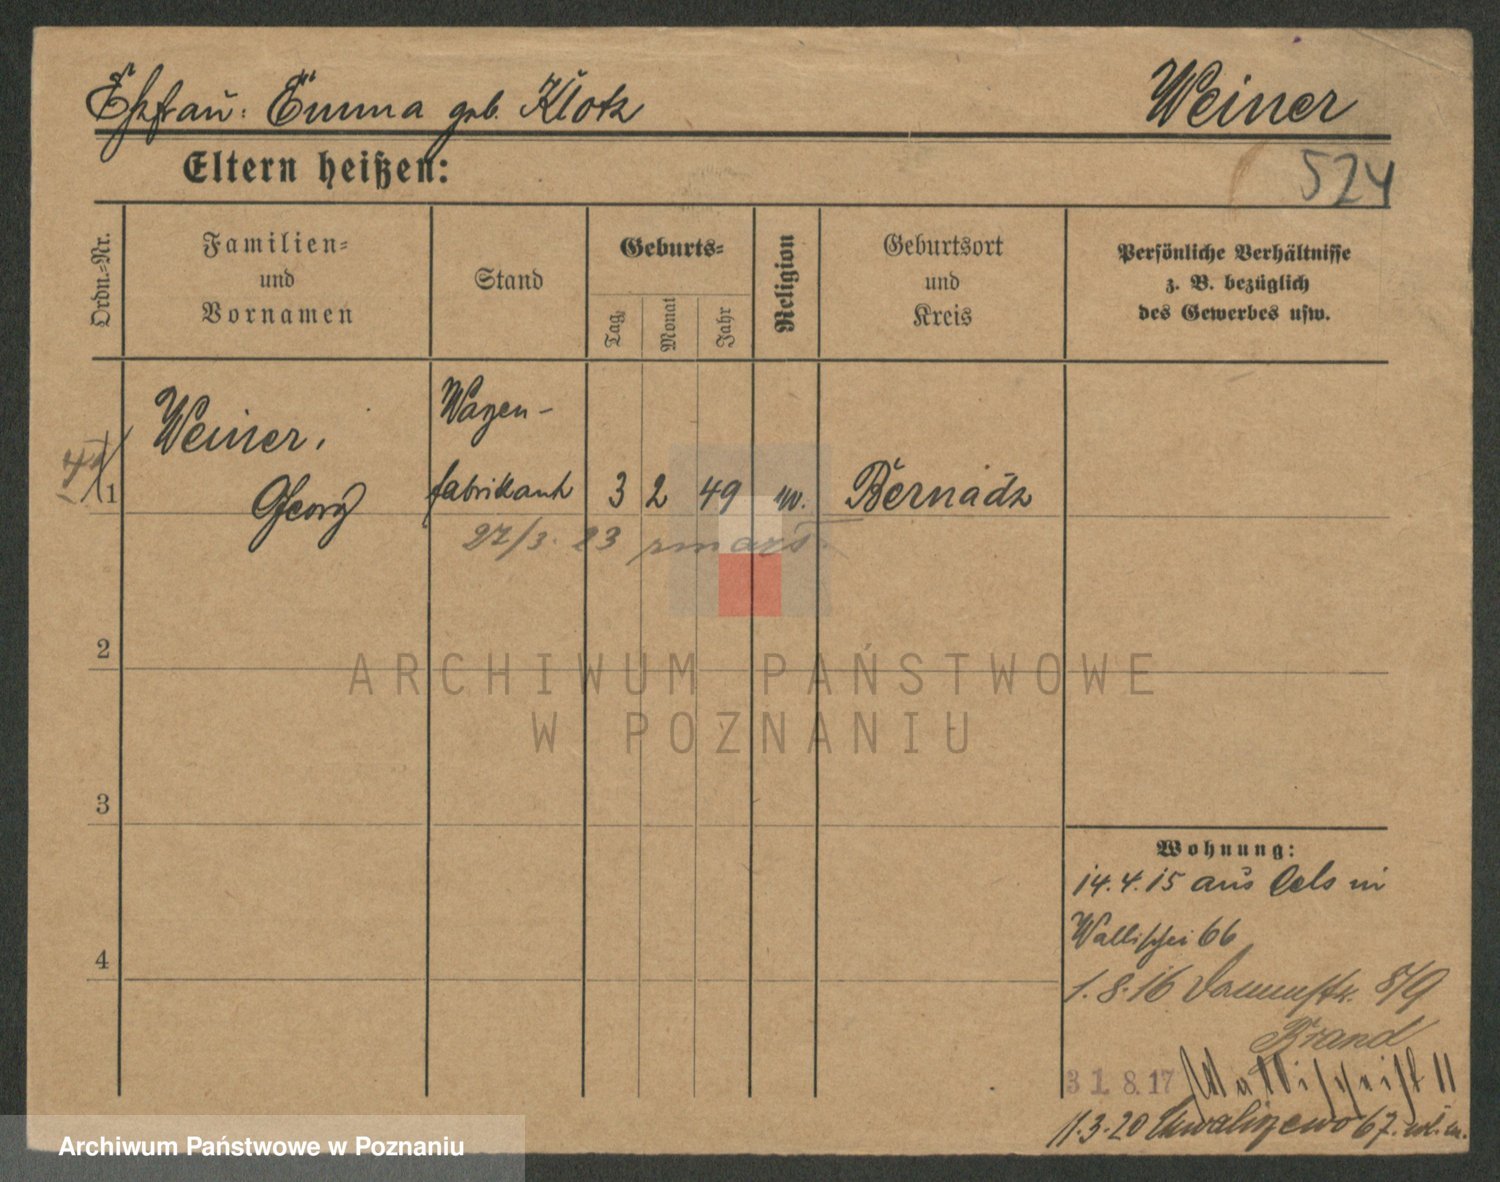 Ehefrau: Emma geb. Klotz
Weiner
Eltern heißen:
524
Ordn.-Nr.
Familien-
und
Vornamen
Stand
Geburts-
Tag
Monat
Jahr
Religion
Geburtsort
und
Kreis
Persönliche Verhältnisse
z. B. bezüglich
des Gewerbes usw.
Weiner,
Georg
Wagen-
fabrikant
1
3 2 49 ev. Bernadz
27/3. 23 zmarł
2
ARCHIWUM PAŃSTWOWE
W POZNANIU
3
Wohnung:
14.4.15 aus Oels in
Wallischei 66
4
1.8.16 Dammstr. 8/9
Brand
31.8.17 Wallischei 11
11.3.20 Chwaliszewo 67.
Archiwum Państwowe w Poznaniu